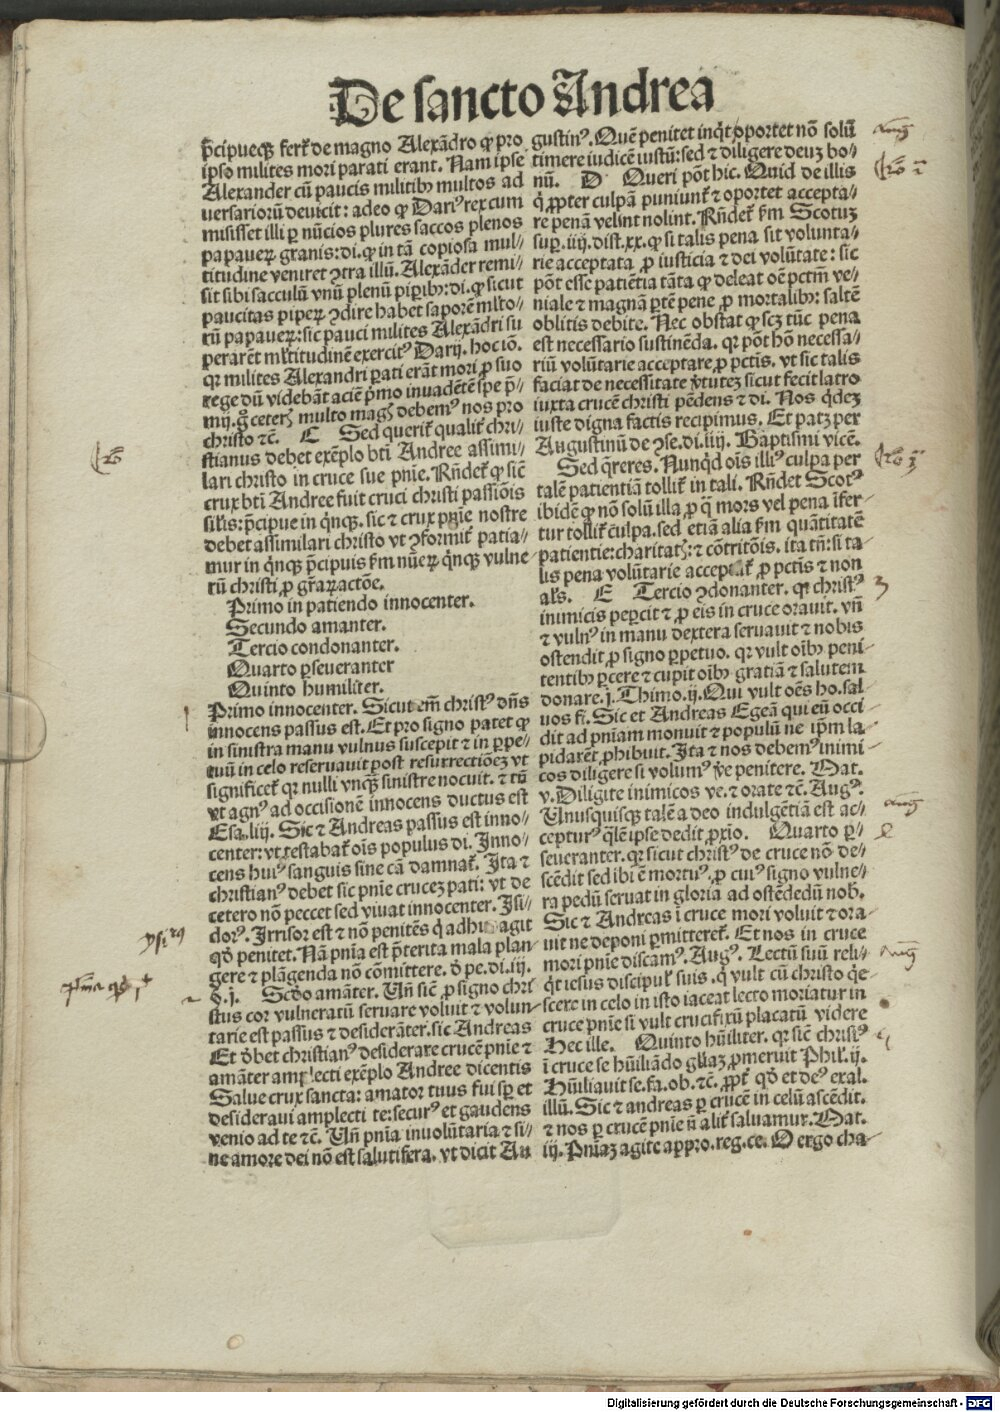 De sancto Andrea
p̄cipueqꝫ ferť de magno Alexādro ꝙ pro
ipso milites mori parati erant. Nam ipse
Alexander cū paucis militibꝰ multos ad
uersariorū deuicit: adeo ꝙ Dariꝰ rex cum
misisset illi ꝑ nūcios plures saccos plenos
papaueꝝ granis: di. ꝙ in tā copiosa mul⸗
titudine veniret ↄtra illū. Alexāder remi⸗
sit sibi sacculū vnū plenū piꝑibꝰ: di. ꝙ sicut
paucitas pipeꝝ ↄdire habet saporē mlto⸗
rū papaueꝝ: sic pauci milites Alexādri su
ꝑarēt mltitudinē exercitꝰ Darij. hoc iō.
qꝛ milites Alexandri ꝑati erāt mori ꝓ suo
rege dū videbāt aciē p̄mo inuadētē spe p̄⸗
mij. gͦ ceteri multo magꝭ debemꝰ nos pro
christo ⁊c. C Sed querit̃ qualit̃ chri⸗
stianus debet exēplo bti Andree assimi⸗
lari christo in cruce sue pnīe. Rñdet̃ ꝙ sic̄
crux bti Andree fuit cruci christi passiōis
silis: p̄cipue in q̇nqꝫ. sic ⁊ crux pnīe nostre
debet assimilari christo vt ↄformit̃ patia⸗
mur in q̇nqꝫ p̄cipuis ẜm nūeꝝ q̇nqꝫ vulne
rū christi ꝓ gr̄aꝝ actōe.
Primo in patiendo innocenter.
Secundo amanter.
Tercio condonanter.
Quarto ꝑseueranter
Quinto humiliter.
Primo innocenter. Sicut em̄ christꝰ dn̄s
innocens passus est. Et pro signo patet ꝙ
in sinistra manu vulnus suscepit ⁊ in ꝑpe⸗
tuū in celo reseruauit post resurrectiōeꝫ vt
significet̃ qꝛ nulli vnqꝫ sinistre nocuit. ⁊ tū
vt agnꝰ ad occisionē innocens ductus est
Esa. liij. Sic ⁊ Andreas passus est inno⸗
center: vt testabat̃ oīs populus di. Inno⸗
cens huiꝰ sanguis sine cā damnat̃. Ita ⁊
christianꝰ debet sic pnīe cruceꝫ pati: vt de
cetero nō peccet sed viuat innocenter. Isi⸗
dorꝰ. Irrisor est ⁊ nō penitēs q̇ adhuc agit
qd̓ penitet. Nā pnīa est p̄terita mala plan⸗
gere ⁊ plāgenda nō cōmittere. d̓ pe. di. iij.
q̇. j. Scd̓o amāter. Vn̄ sic̄ ꝓ signo chri
stus cor vulneratū seruare voluit ⁊ volun⸗
tarie est passus ⁊ desiderāter. sic Andreas
Et d̓bet christianꝰ desiderare crucē pnīe ⁊
amāter amplecti exēplo Andree dicentis
Salue crux sancta: amator tuus fui sꝑ et
desideraui amplecti te: securꝰ et gaudens
venio ad te ⁊c. Vn̄ pnīa inuolūtaria ⁊ si⸗
ne amore dei nō est salutifera. vt dicit Au
gustinꝰ. Quē penitet inq̇t oportet nō solū
timere iudicē iustū: sed ⁊ diligere deuꝫ bo⸗
nū. D Queri pōt hic. Quid de illis
q̇ ꝓpter culpā puniunt̃ ⁊ oportet accepta⸗
re penā velint nolint. Rñdet̃ ẜm Scotuꝫ
suꝑ. iiij. dist. xx. ꝙ si talis pena sit volunta⸗
rie acceptata ꝓ iusticia ⁊ dei volūtate: sic
pōt esse patiētia tāta ꝙ deleat oē pctm̄ ve⸗
niale ⁊ magnā ꝑtē pene ꝓ mortalibꝰ: saltē
oblitis debite. Nec obstat ꝙ scꝫ tūc pena
est necessario sustinēda. qꝛ pōt hō necessa⸗
riū volūtarie acceptare ꝓ pctis. vt sic talis
faciat de necessitate v̓tuteꝫ sicut fecit latro
iuxta crucē christi pēdens ⁊ di. Nos q̇deꝫ
iuste digna factis recipimus. Et patꝫ per
Augustinū de ↄse. di. iiij. Baptismi vicē.
Sed q̄reres. Nunq̇d oīs illiꝰ culpa per
talē patientiā tollit̃ in tali. Rñdet Scotꝰ
ibidē ꝙ nō solū illa ꝓ q̄ mors vel pena īfer⸗
tur tollit̃ culpa. sed etiā alia ẜm quātitatē
patientie: charitatꝭ: ⁊ cōtritōis. ita tn̄: si ta⸗
lis pena volūtarie acceptat̃ ꝓ pctis ⁊ non
als. E Tercio ↄdonanter. qꝛ christꝰ
inimicis peꝑcit ⁊ ꝓ eis in cruce orauit. vn̄
⁊ vulnꝰ in manu dextera seruauit ⁊ nobis
ostendit ꝓ signo ꝑpetuo. qꝛ vult oībꝰ peni⸗
tentibꝰ ꝑcere ⁊ cupit oībꝰ gratiā ⁊ salutem
donare. j. Thimo. ij. Qui vult oēs ho. sal⸗
uos fi. Sic et Andreas Egeā qui eū occi⸗
dit ad pnīam monuit ⁊ populū ne ip̄m la⸗
pidarēt ꝓhibuit. Ita ⁊ nos debemꝰ inimi⸗
cos diligere si volumꝰ v̓e penitere. Mat.
v. Diligite inimicos ve. ⁊ orate ⁊c. Augꝰ.
Vnusquisqꝫ talē a deo indulgētiā est ac⸗
cepturꝰ q̄lē ipse dedit ꝓxīo. Quarto ꝑ⸗
seueranter. qꝛ sicut christꝰ de cruce nō de⸗
scēdit sed ibi ē mortuꝰ. ꝓ cuiꝰ signo vulne⸗
ra pedū seruat in gloria ad ostēdēdū nob̄.
Sic ⁊ Andreas ī cruce mori voluit ⁊ ora⸗
uit ne deponi ꝑmitteret̃. Et nos in cruce
mori pnīe discamꝰ. Augꝰ. Lectū suū reli⸗
q̇t iesus discipulꝭ suis. q̇ vult cū christo q̇e⸗
scere in celo in isto iaceat lecto moriatur in
cruce pnīe si vult crucifixū placatū videre
Hec ille. Quinto hūiliter. qꝛ sic̄ christꝰ
ī cruce se hūiliādo gl̄iaꝫ ꝓmeruit Phil. ij.
Hūiliauit se. fa. ob. ⁊c. ꝓpt̃ qd̓ et deꝰ exal.
illū. Sic ⁊ andreas ꝑ crucē in celū ascēdit.
⁊ nos ꝑ crucē pnīe n̄ alit̃ saluamur. Mat.
iij. Pnīaꝫ agite appro. reg. ce. O ergo cha⸗
Digitalisierung gefördert durch die Deutsche Forschungsgemeinschaft - DFG